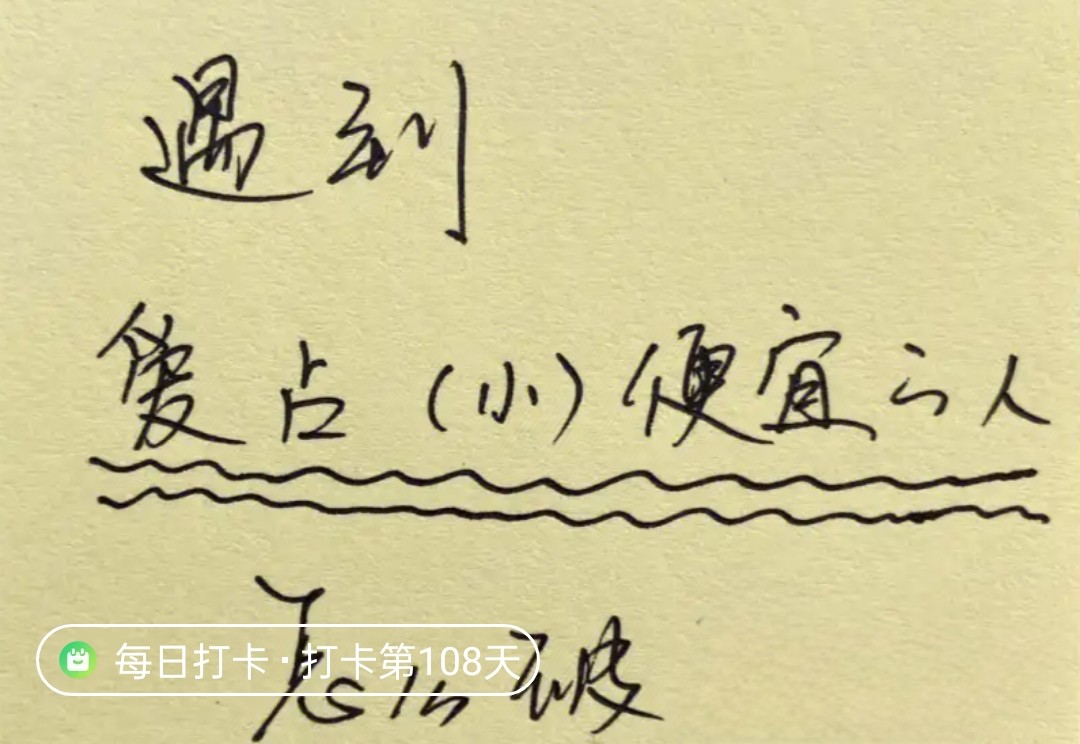 遇到
爱占（小）便宜之人
怎么破
每日打卡·打卡第108天